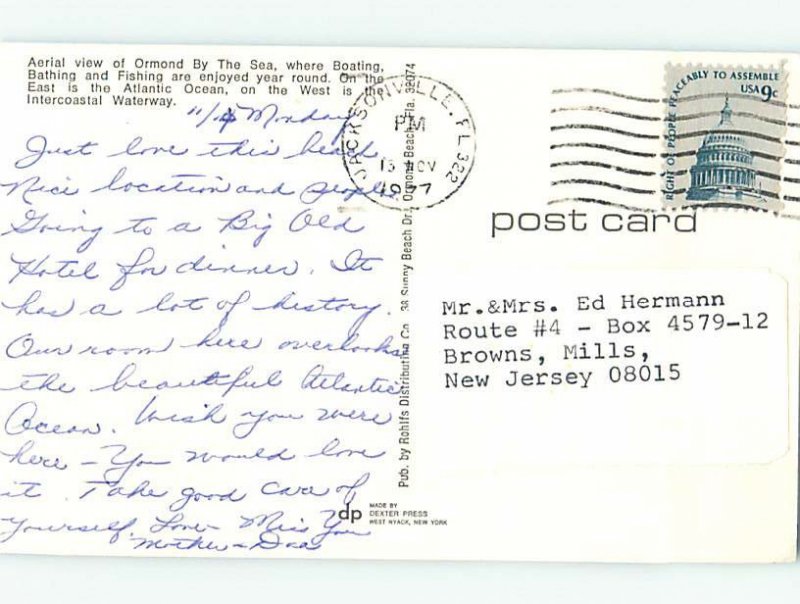 Aerial view of Ormond By The Sea, where Boating,
Bathing and Fishing are enjoyed year round. On the
East is the Atlantic Ocean, on the West is the
Intercoastal Waterway.
11/14 Monday
Just love this beach
Nice location and people.
Going to a Big Old
Hotel for dinner. It
has a lot of history.
Our room here overlooks
the beautiful Atlantic
Ocean. Wish you were
here - You would love
it. Take good care of
yourself. Love - Miss You
Mother - Dad
Pub. by Rohlfs Distributing Co. 38 Sunny Beach Dr., Ormond Beach, Fla. 32074
JACKSONVILLE, FL 322
PM
15 NOV
1977
RIGHT OF PEOPLE PEACEABLY TO ASSEMBLE
USA 9c
post card
Mr.&Mrs. Ed Hermann
Route #4 - Box 4579-12
Browns, Mills,
New Jersey 08015
dp
MADE BY
DEXTER PRESS
WEST NYACK, NEW YORK